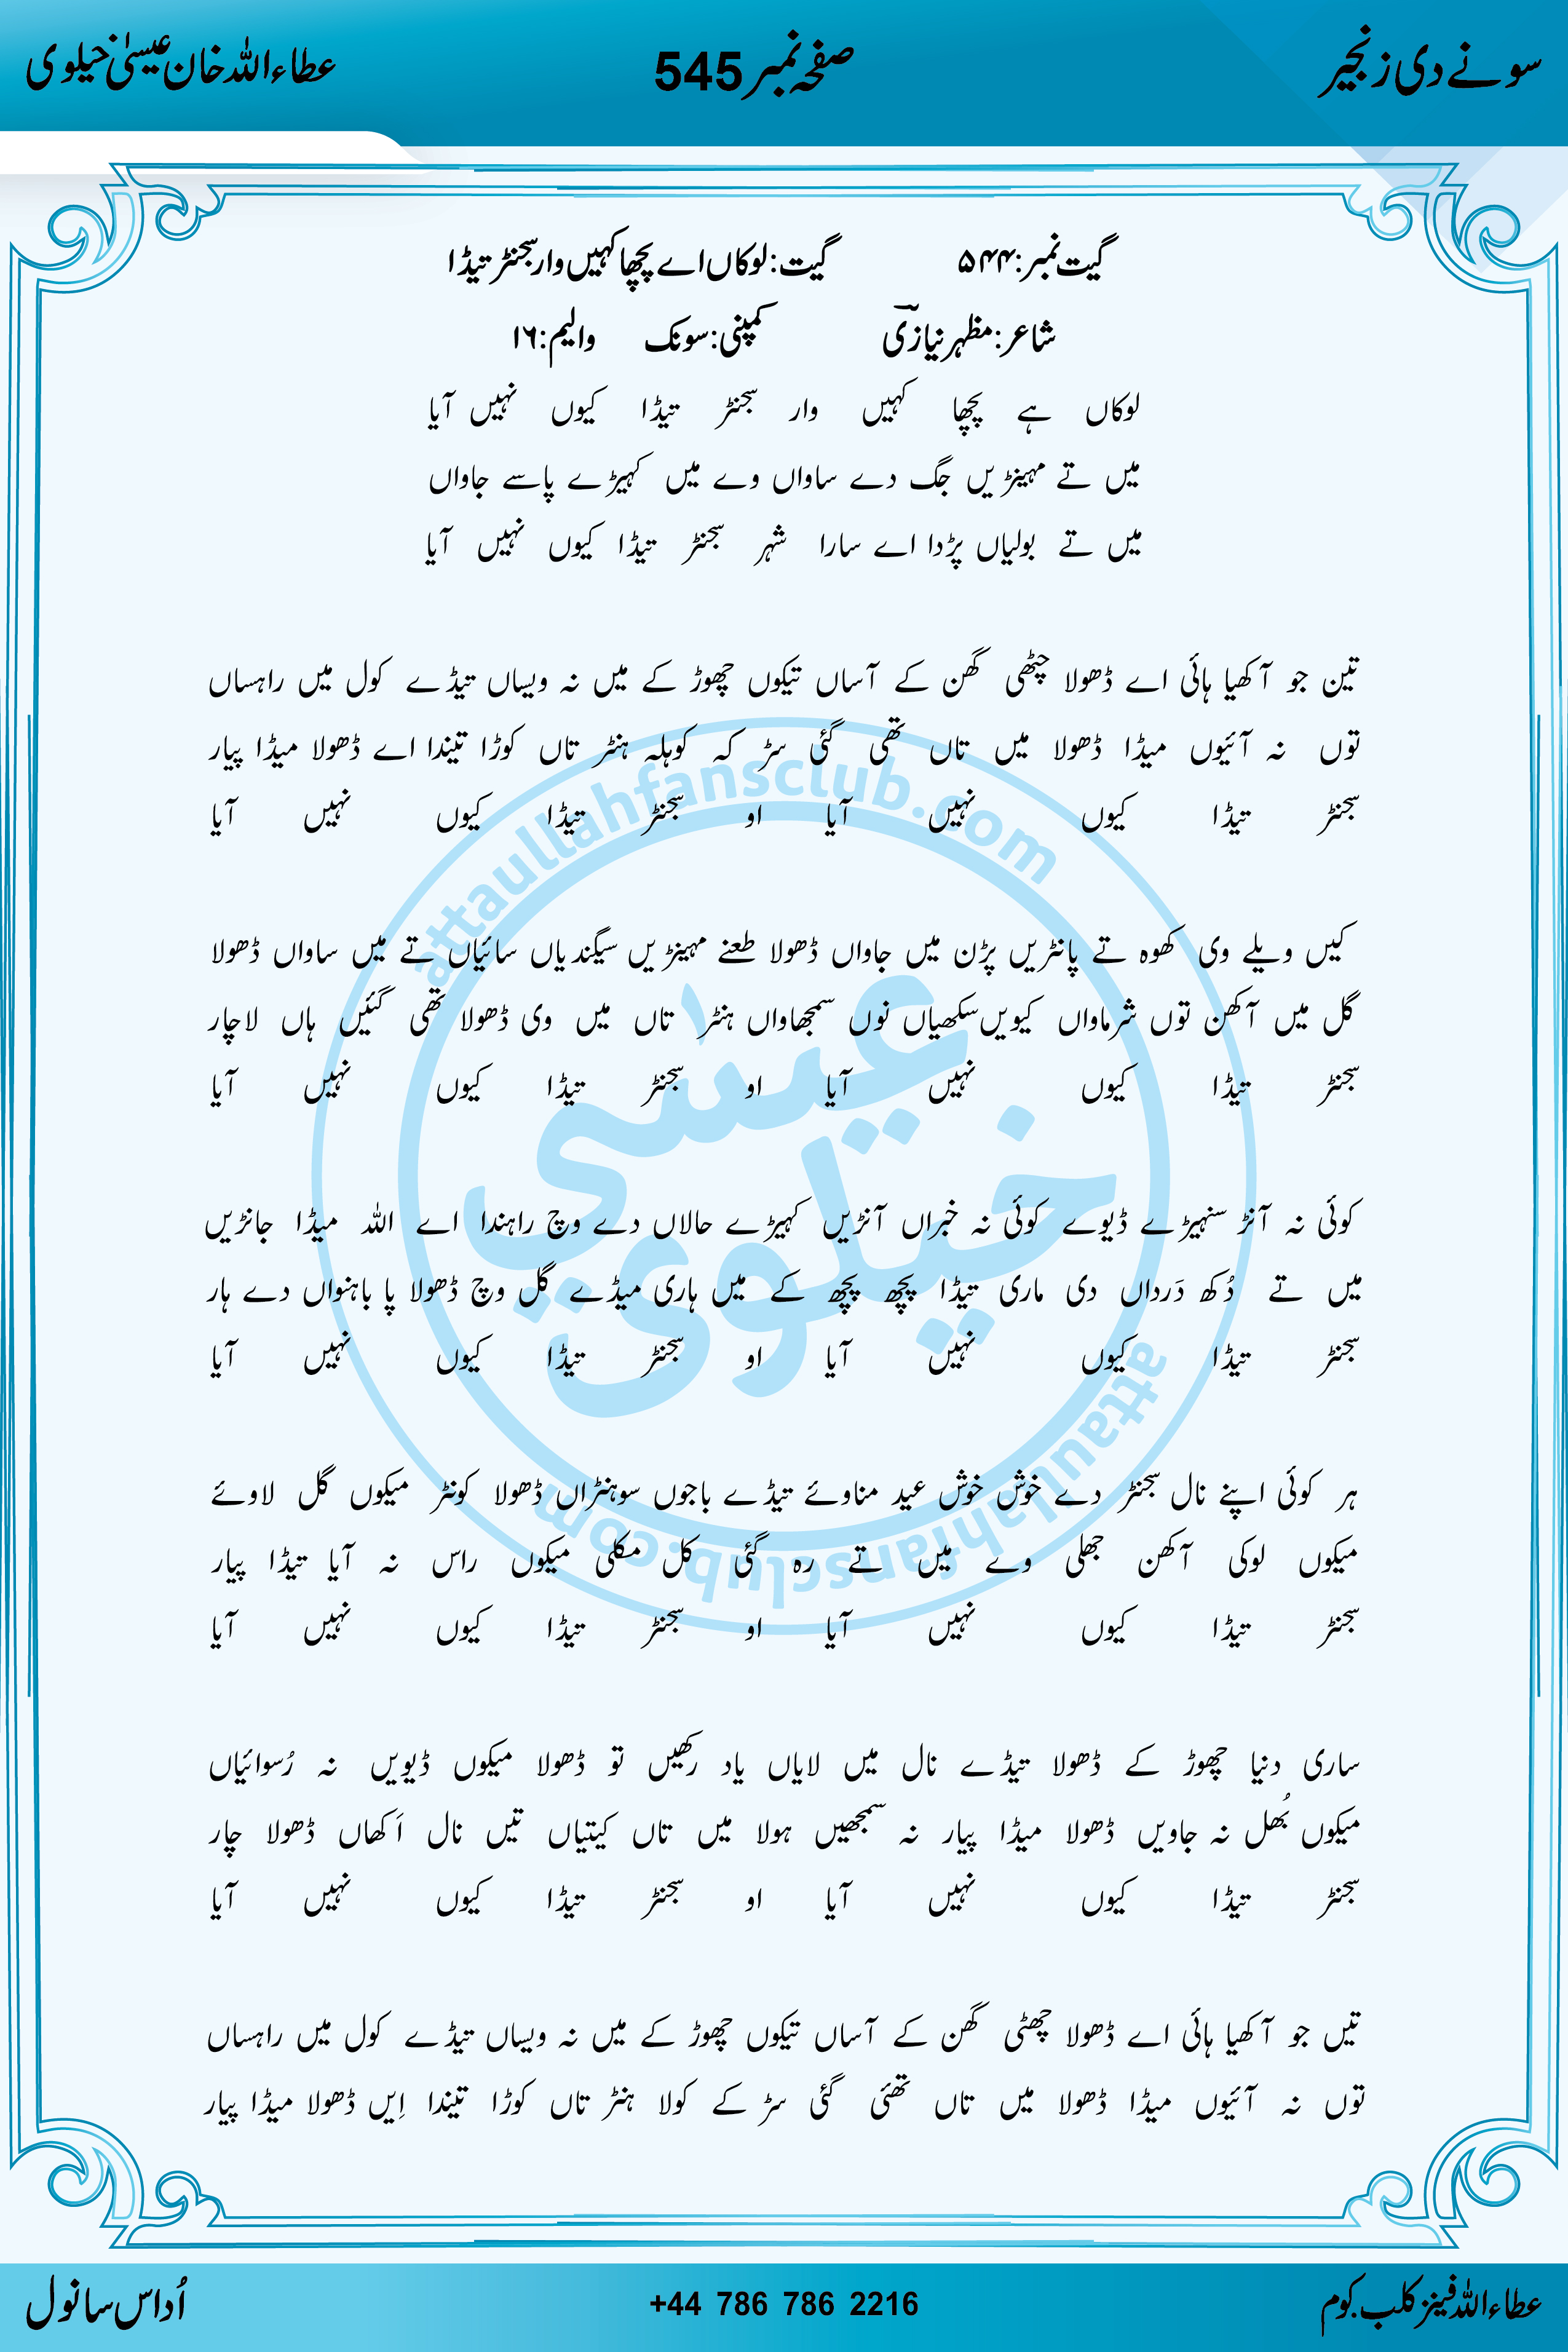 سونے دی زنجیر صفحہ نمبر 545 عطاءاللہ خان عیسیٰ خیلوی
گیت نمبر: ۵۴۴ گیت: لوکاں اے پچھا کہیں وار سجنڑ تیڈا
شاعر: مظہر نیازی کمپنی: سونک والیم: ۱۶
لوکاں ہے پچھا کہیں وار سجنڑ تیڈا کیوں نہیں آیا
میں تے مہینڑیں جگ دے ساواں وے میں کہیڑے پاسے جاواں
میں تے بولیاں پڑدا اے سارا شہر سجنڑ تیڈا کیوں نہیں آیا
تین جو آکھیا ہائی اے ڈھولا چٹھی گھن کے آساں تیکوں چھوڑ کے میں نہ ویساں تیڈے کول میں راہساں
توں نہ آئیوں میڈا ڈھولا میں تاں تھی گئی سڑ کہ کوہلہ ہنٹر تاں کوڑا تیندا اے ڈھولا میڈا پیار
سجنڑ تیڈا کیوں نہیں آیا او سجنڑ تیڈا کیوں نہیں آیا
کیں ویلے وی کھوہ تے پانٹریں پڑن میں جاواں ڈھولا طعنے مہینڑیں سیگندیاں سائیاں تے میں ساواں ڈھولا
گل میں آکھن توں شرماواں کیویں سکھیاں نوں سمجھاواں ہنٹر تاں میں وی ڈھولا تھی گئیں ہاں لاچار
سجنڑ تیڈا کیوں نہیں آیا او سجنڑ تیڈا کیوں نہیں آیا
کوئی نہ آنڑ سنہیڑے ڈیوے کوئی نہ خبراں آنڑیں کہیڑے حالاں دے وچ راہندا اے اللہ میڈا جانڑیں
میں تے دُکھ دَرداں دی ماری تیڈا پچھ پچھ کے میں ہاری میڈے گل وچ ڈھولا پا باہنواں دے ہار
سجنڑ تیڈا کیوں نہیں آیا او سجنڑ تیڈا کیوں نہیں آیا
ہر کوئی اپنے نال سجنڑ دے خوش خوش عید مناوئے تیڈے باجوں سوہنڑاں ڈھولا کونٹر میکوں گل لاوئے
میکوں لوکی آکھن جھلی وے میں تے رہ گئی کل مکلی میکوں راس نہ آیا تیڈا پیار
سجنڑ تیڈا کیوں نہیں آیا او سجنڑ تیڈا کیوں نہیں آیا
ساری دنیا چھوڑ کے ڈھولا تیڈے نال میں لایاں یاد رکھیں تو ڈھولا میکوں ڈیویں نہ رُسوائیاں
میکوں بُھل نہ جاویں ڈھولا میڈا پیار نہ سمجھیں ہولا میں تاں کیتیاں تیں نال اَکھاں ڈھولا چار
سجنڑ تیڈا کیوں نہیں آیا او سجنڑ تیڈا کیوں نہیں آیا
تیں جو آکھیا ہائی اے ڈھولا چھٹی گھن کے آساں تیکوں چھوڑ کے میں نہ ویساں تیڈے کول میں راہساں
توں نہ آئیوں میڈا ڈھولا میں تاں تھئی گئی سڑ کے کولا ہنٹر تاں کوڑا تیندا اِیں ڈھولا میڈا پیار
attaullahfansclub.com
عیسٰی
خیلوی
attaullahfansclub.com
عطاءاللہ فینز کلب.کوم +44 786 786 2216 اُداس سانول